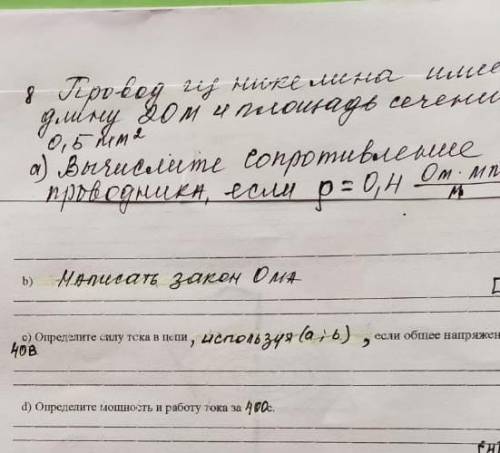 8 Провод из никелина имее
длину 20 м и площадь сечени
0,5 мм²
a) Вычислите сопротивление
проводника, если ρ = 0,4 Ом · мм / м
b) Написать закон Ома
c) Определите силу тока в цепи, используя (a; b), если общее напряжен
40В
d) Определите мощность и работу тока за 400с.